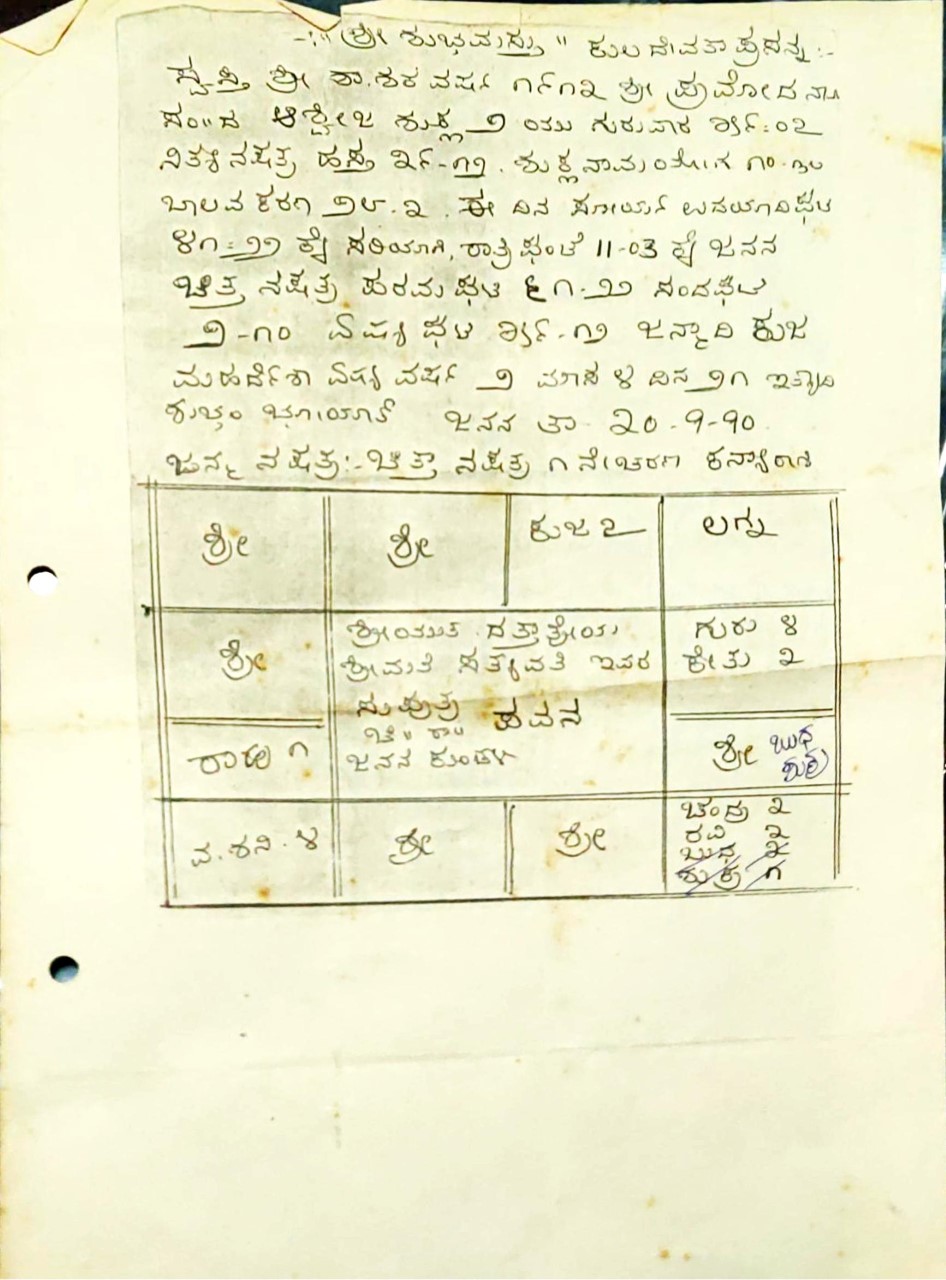 -:" ಶ್ರೀ ಶುಭಮಸ್ತು " ಕುಲದೇವತಾ ಪ್ರಸನ್ನ :-
ಸ್ವಸ್ತಿ ಶ್ರೀ ಶಾ.ಶಕ ವರ್ಷ ೧೯೧೨ ಶ್ರೀ ಪ್ರಮೋದ ನಾಮ
ಸಂ॥ದ ಆಶ್ವೀಜ ಶುಕ್ಲ ೨ ಯು ಗುರುವಾರ
ನಿತ್ಯ ನಕ್ಷತ್ರ ಹಸ್ತ ಶುಕ್ಲ ನಾಮ ಯೋಗ
ಬಾಲವ ಕರಣ ಈ ದಿನ ಸೂರ್ಯ ಉದಯಾದಿ ಘಟಿ
೪೧=೨೨ ಕ್ಕೆ ಸರಿಯಾಗಿ, ರಾತ್ರಿ ಘಂಟೆ 11-03 ಕ್ಕೆ ಜನನ
ಚಿತ್ರ ನಕ್ಷತ್ರ ಪರಮ ಘಟಿ ೬೧-೨೨
೨-೧೦ ಏಷ್ಯ ಘಟಿ ಜನ್ಮಾದಿ ಕುಜ
ಮಹರ್ದಶಾ ಏಷ್ಯ ವರ್ಷ ಮಾಸ ೪ ದಿನ ೨೧ ಇತ್ಯಾದಿ
ಶುಭಂ ಭೂಯಾತ್ ಜನನ ತಾ 20-9-90.
ಜನ್ಮ ನಕ್ಷತ್ರ:- ಚಿತ್ತಾ ನಕ್ಷತ್ರ ೧ ನೇ ಚರಣ ಕನ್ಯಾರಾಶಿ
ಶ್ರೀ ಶ್ರೀ ಕುಜ ೨ ಲಗ್ನ
ಶ್ರೀ
ಶ್ರೀಯುತ ದತ್ತಾತ್ರೇಯ
ಶ್ರೀಮತಿ ಸತ್ಯವತಿ ಇವರ
ಸುಪುತ್ರ ಪವನ
ಚಿ॥ ರಾ॥
ಜನನ ಕುಂಡಲಿ
ಗುರು ೪
ಕೇತು ೨
ರಾಹು ೧
ಶ್ರೀ ಬುಧ
ಶುಕ್ರ
ವ. ಶನಿ. ೪ ಶ್ರೀ ಶ್ರೀ
ಚಂದ್ರ ೨
ರವಿ ೨
ಬುಧ ೨
ಶುಕ್ರ ೧